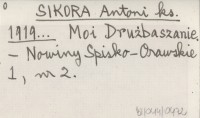 SIKORA Antoni ks.
1919... Moi Drużbaszanie.
– Nowiny Spisko-Orawskie
1, nr 2.